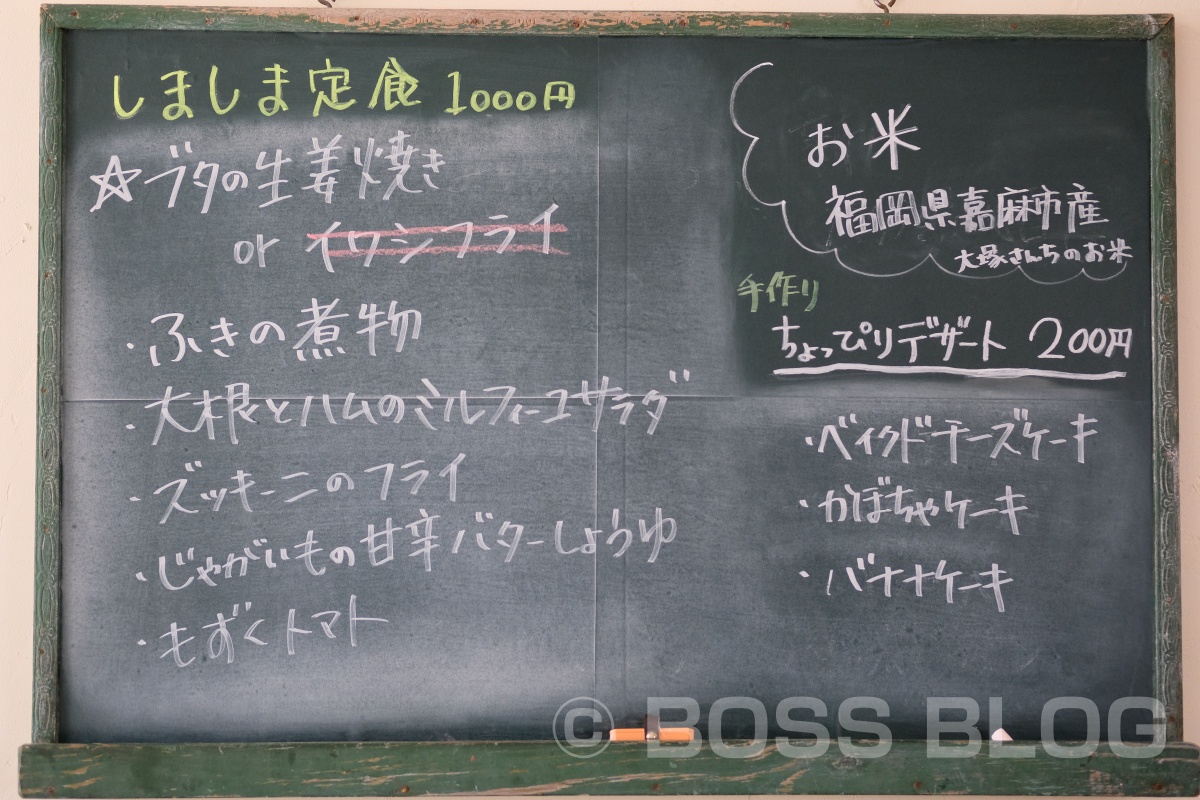 しましま定食 1000円
☆ブタの生姜焼き
or イワシフライ
・ふきの煮物
・大根とハムのミルフィーユサラダ
・ズッキーニのフライ
・じゃがいもの甘辛バターしょうゆ
・もずくトマト
お米
福岡県嘉麻市産
大塚さんちのお米
手作り
ちょっぴりデザート 200円
・ベイクドチーズケーキ
・かぼちゃケーキ
・バナナケーキ
© BOSS BLOG